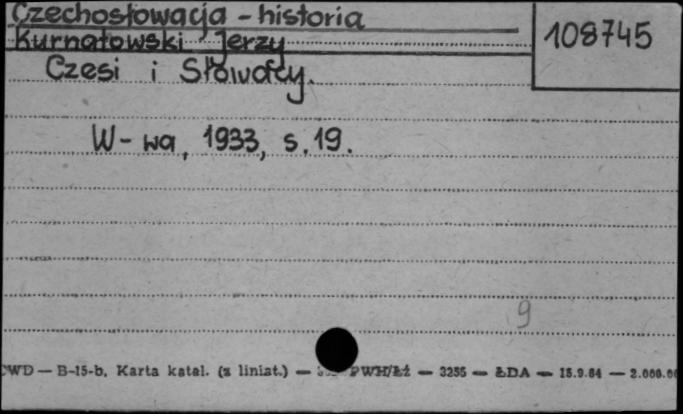 Czechosłowacja - historia
108745
Kurnatowski Jerzy
Czesi i Słowacy.
W-wa, 1933, s. 19.
9
CWD — B-15-b, Karta katal. (z liniat.) — PWH/Łż — 3255 — ŁDA — 15.9.64 — 2.000.00